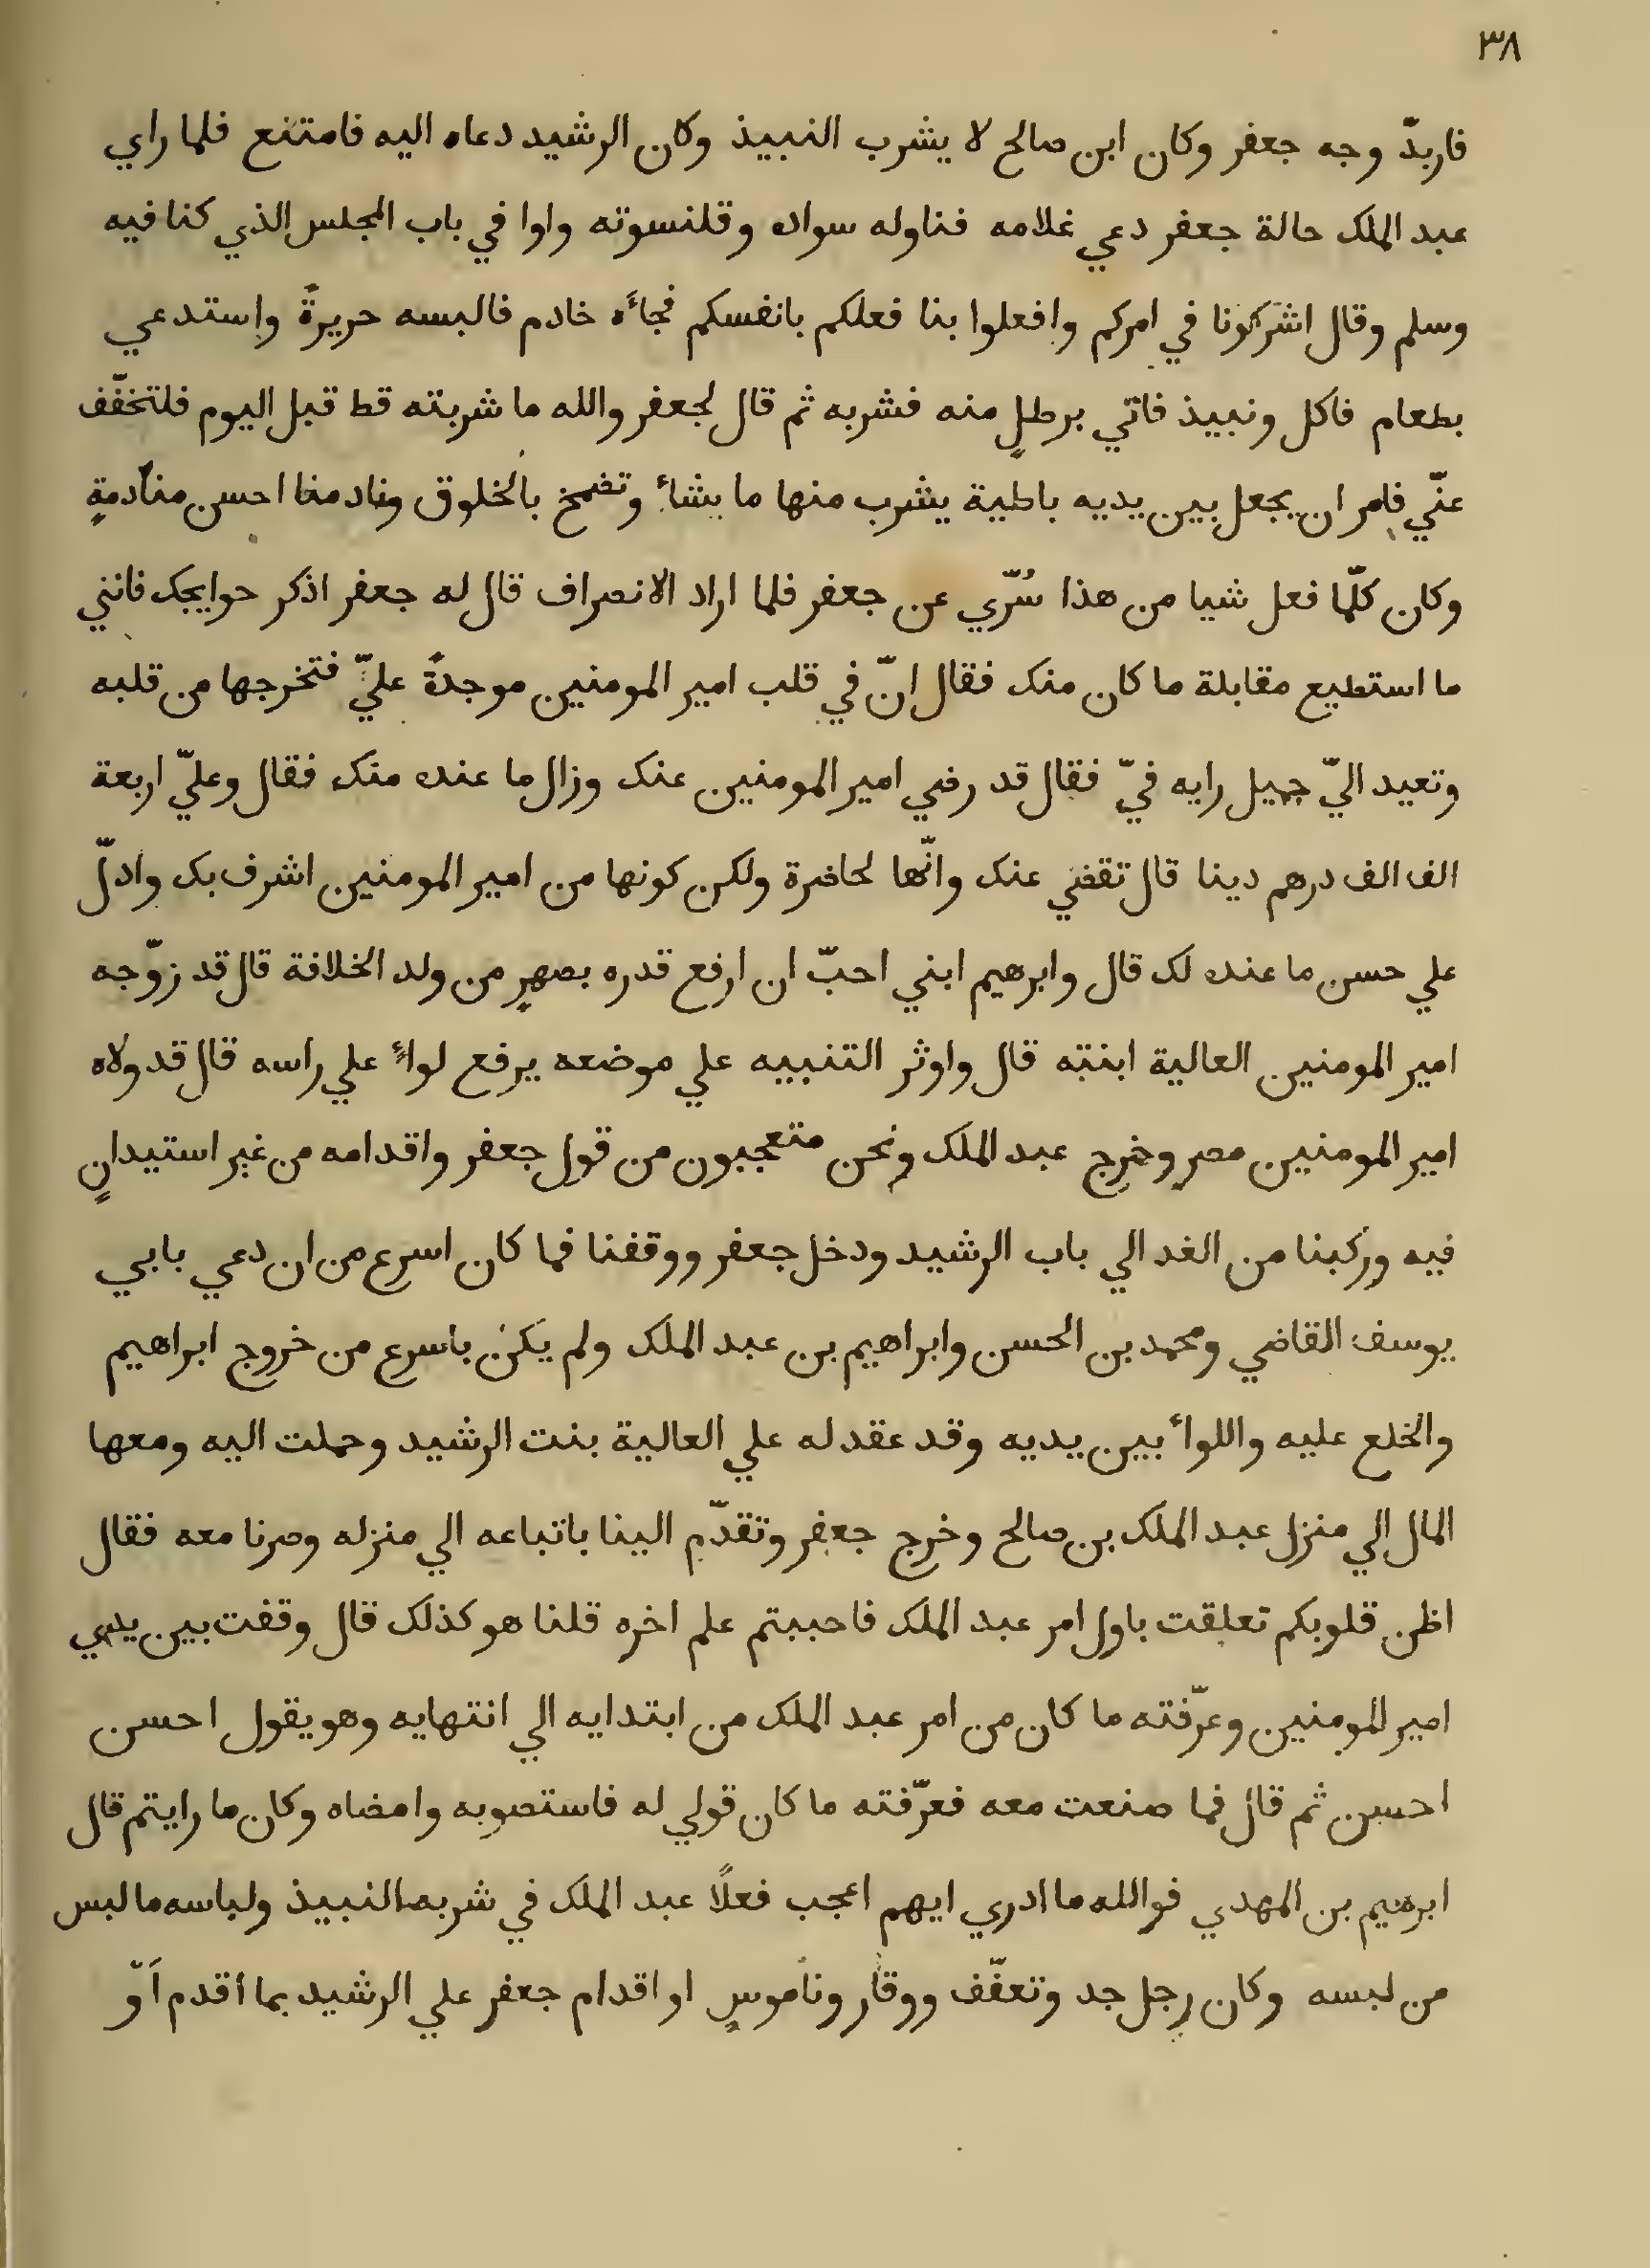 ٣٨
فاربدّ وجه جعفر وكان ابن صالح لا يشرب النبيذ وكان الرشيد دعاه اليه فامتنع فلما راي
عبد الملك حالة جعفر دعي غلامه فناوله سواده وقلنسوته واوا في باب المجلس الذي كنا فيه
وسلم وقال اشركونا في امركم وافعلوا بنا فعلكم بانفسكم فجاءه خادم فالبسه حريرةً واستدعي
بطعام فاكل ونبيذ فاتي برطلٍ منه فشربه ثم قال لجعفر والله ما شربته قط قبل اليوم فلتخفّف
عنّي فامر ان يجعل بين يديه باطية يشرب منها ما يشاء وتضمخ بالخلوق ونادمنا احسن منادمةٍ
وكان كلّما فعل شيا من هذا سُرّي عن جعفر فلما اراد الانصراف قال له جعفر اذكر حوايجك فانني
ما استطيع مقابلة ما كان منك فقال انّ في قلب امير المومنين موجدةً عليّ فتخرجها من قلبه
وتعيد اليّ جميل رايه فيّ فقال قد رضي امير المومنين عنك وزال ما عنده منك فقال وعليّ اربعة
الف الف درهم دينا قال تقضي عنك وانّها لحاضرة ولكن كونها من امير المومنين اشرف بك وادلّ
علي حسن ما عنده لك قال وابرهيم ابني احبّ ان ارفع قدره بصهرٍ من ولد الخلافة قال قد زوّجه
امير المومنين العالية ابنته قال واوثر التنبيه علي موضعه يرفع لواءٍ علي راسه قال قد ولاه
امير المومنين مصر وخرج عبد الملك ونحن متعجبون من قول جعفر واقدامه من غير استيدانٍ
فيه وركبنا من الغد الي باب الرشيد ودخل جعفر ووقفنا فما كان اسرع من ان دعي بابي
يوسف القاضي ومحمد بن الحسن وابراهيم بن عبد الملك ولم يكن باسرع من خروج ابراهيم
والخلع عليه واللواء بين يديه وقد عقد له علي العالية بنت الرشيد وحملت اليه ومعها
المال الي منزل عبد الملك بن صالح وخرج جعفر وتقدّم الينا باتباعه الي منزله وصرنا معه فقال
اظن قلوبكم تعلقت باول امر عبد الملك فاحببتم علم اخره قلنا هو كذلك قال وقفت بين يدي
امير المومنين وعرّفته ما كان من امر عبد الملك من ابتدايه الي انتهايه وهو يقول احسن
احسن ثم قال فما صنعت معه فعرّفته ما كان قولي له فاستصوبه وامضاه وكان ما رايتم قال
ابرهيم بن المهدي فوالله ما ادري ايهم اعجب فعلًا عبد الملك في شربه النبيذ ولباسه ما لبس
من لبسه وكان رجل جد وتعفّف ووقار وناموسٍ او اقدام جعفر علي الرشيد بما اقدم اَوّ